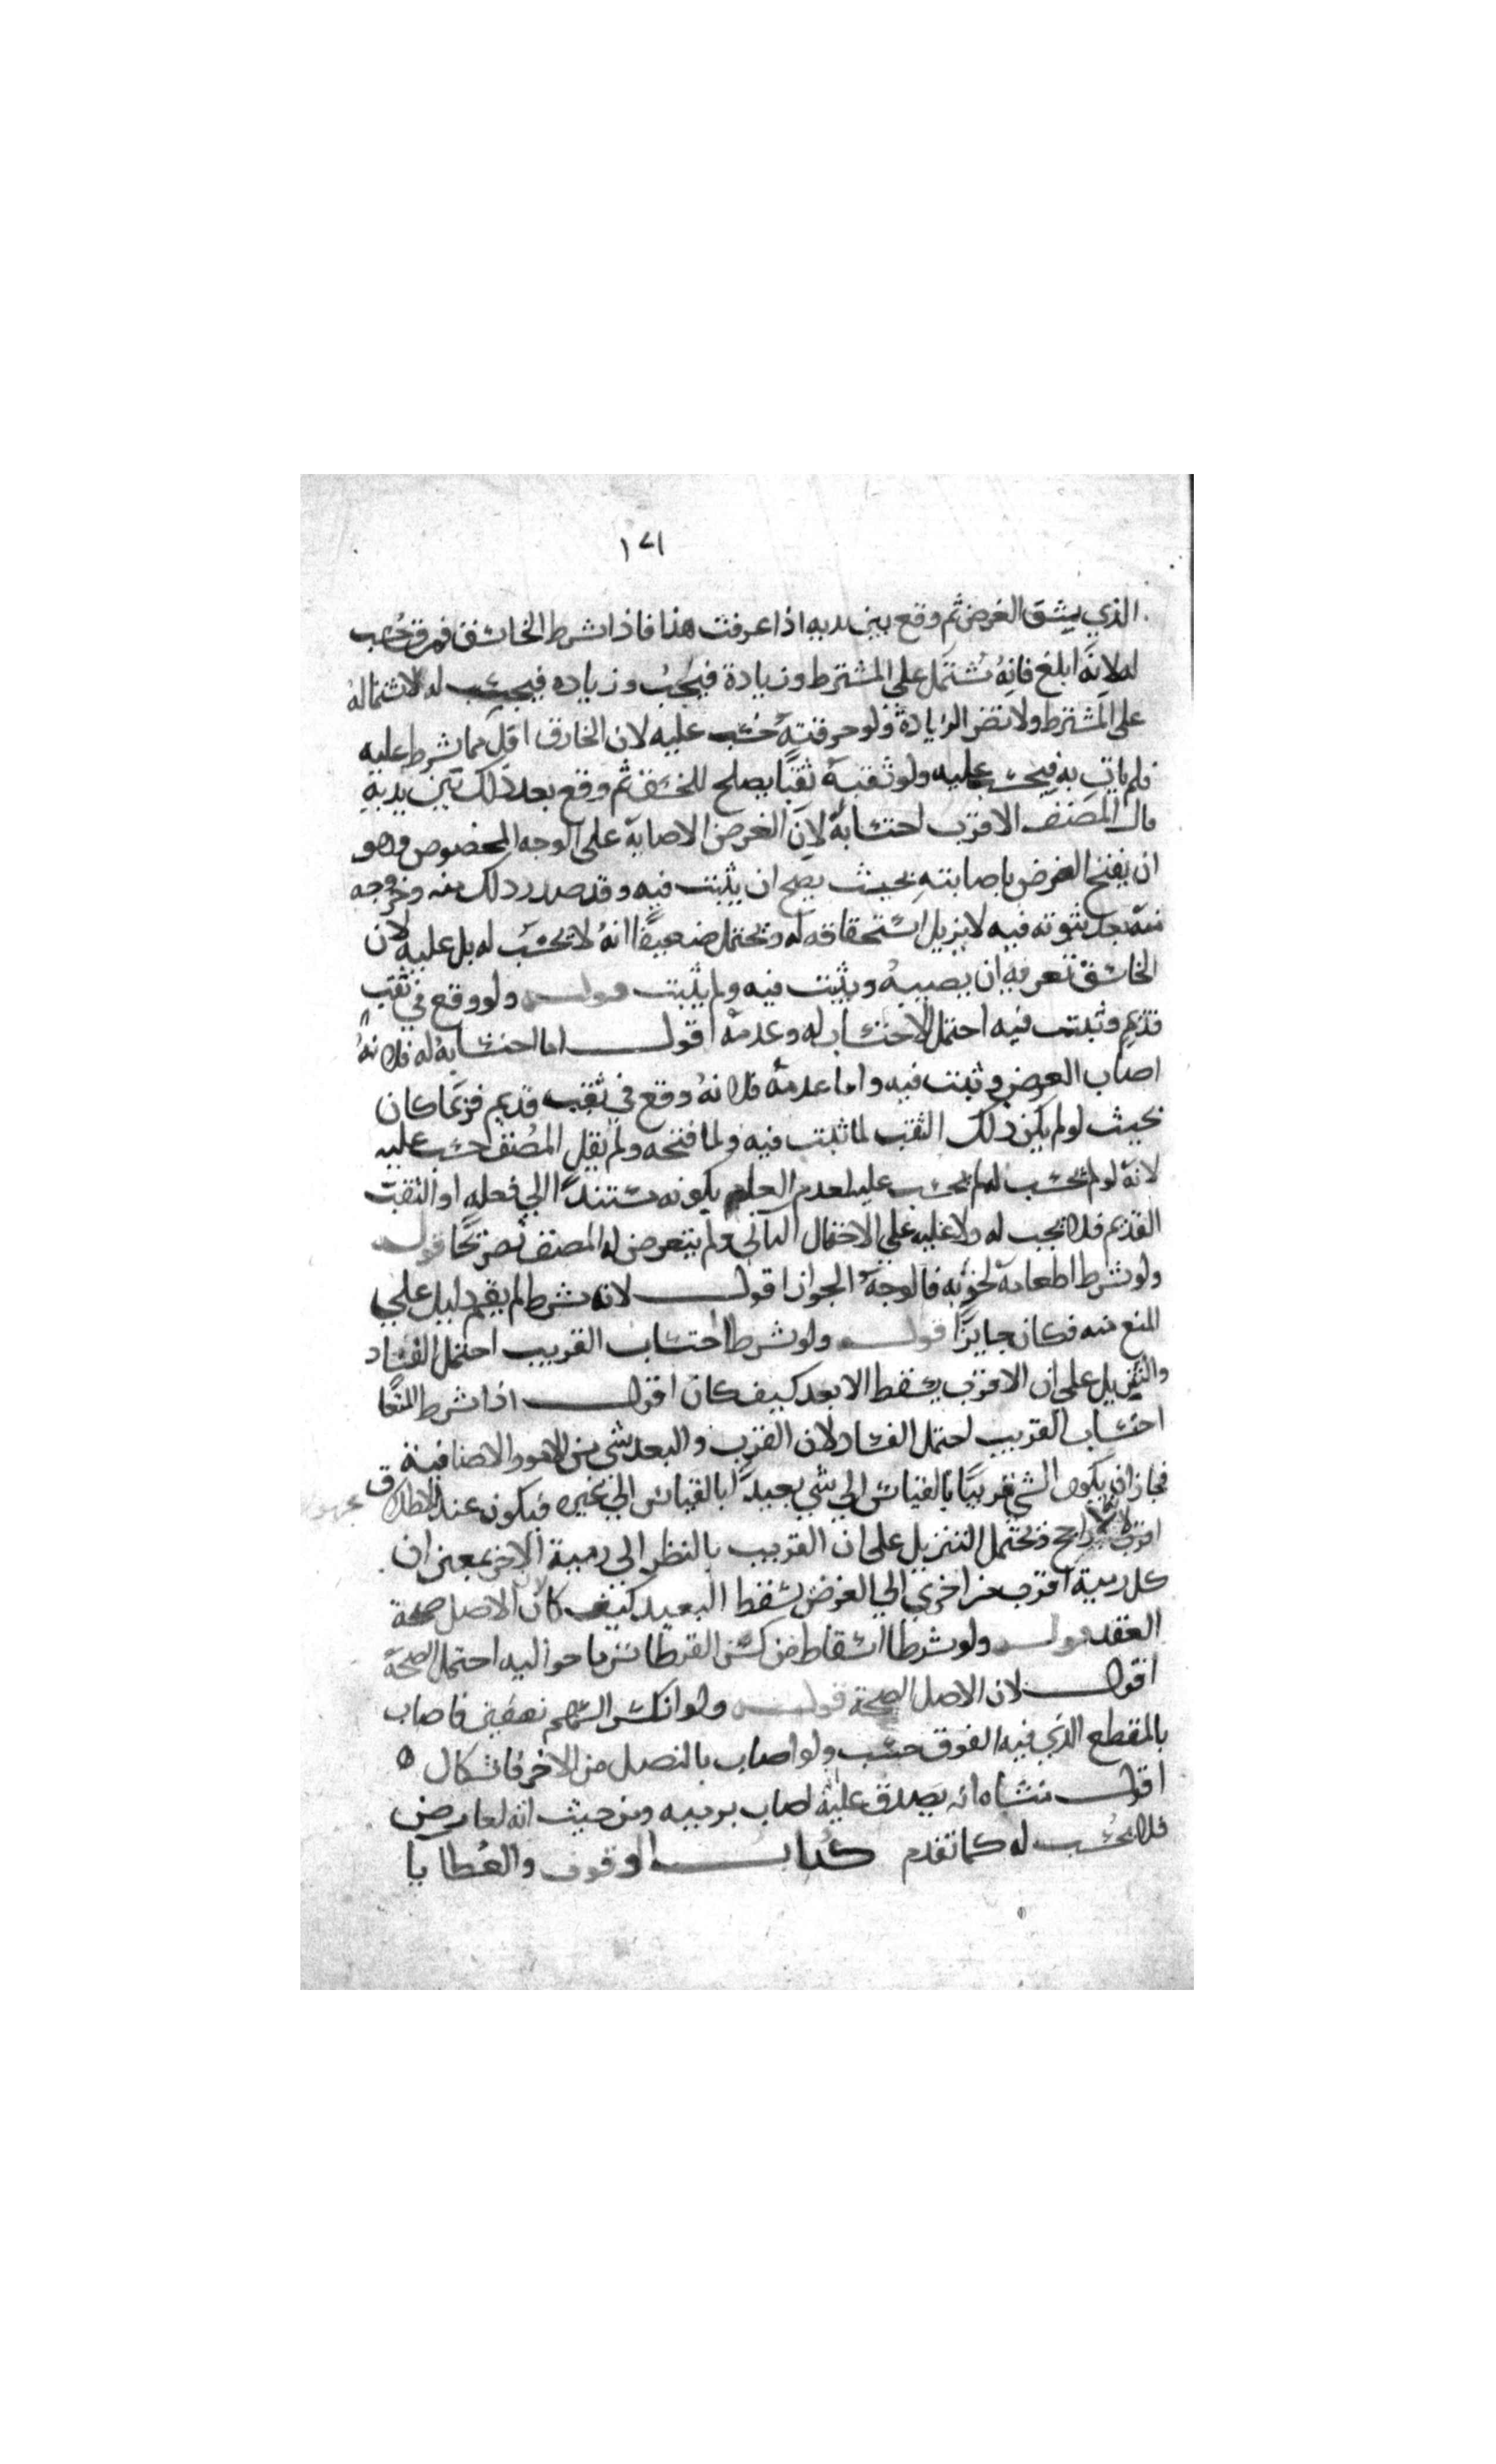 ١٧١
الذي يشق الغرض ثم وقع بين يديه اذا عرفت هذا فاذا شرط الخاسق فمرق حُسب
له لانه ابلغ فانه يشتمل على المشترط وزيادة فيحسب له لاشتماله
على المشترط ولا تضر الزيادة ولو خرقته حُسب عليه لان الخارق اقل مما شرط عليه
فلم يات به فيحسب عليه ولو ثقبه ثقبًا يصلح للخسق ثم وقع بعد ذلك بين يديه
قال المصنف الاقرب احتسابه لان الغرض الاصابة على الوجه المخصوص وهو
ان يفتح الغرض باصابته بحيث يصح ان يثبت فيه وقد صدر ذلك منه وخروجه
منه بعد ثبوته فيه لا يزيل استحقاقه له ويحتمل ضعيفًا انه لا يحسب له بل عليه لان
الخاسق تعريفه ان يصيبه ويثبت فيه ولم يثبت قوله ولو وقع في ثقب
قديم وثبت فيه احتمل الاحتساب له وعدمه اقول اما احتسابه له فلانه
اصاب الغرض وثبت فيه واما عدمه فلانه وقع في ثقب قديم فربما كان
بحيث لو لم يكن ذلك الثقب لما ثبت فيه ولما فتحه ولم يقل المصنف حسب عليه
لانه لو لم يحسب له لم يحسب عليه لعدم العلم بكونه مستندًا الى فعله او الثقب
القديم فلا يحسب له ولا عليه على الاحتمال الثاني ولم يتعرض له المصنف تصريحًا قوله
ولو شرط اطعامه لحزبه فالوجه الجواز اقول لانه شرط لم يقم دليل على
المنع منه فكان جايزًا قوله ولو شرط احتساب القريب احتمل الفساد
والتنزيل على ان الاقرب يسقط الابعد كيف كان اقول اذا شرط المتعا
احتساب القريب احتمل الفساد لان القرب والبعد شي من الامور الاضافية
فجاز ان يكون الشي قريبًا بالقياس الى شي بعيدًا بالقياس الى غيره فيكون عند الاطلاق
راجح ويحتمل التنزيل على ان القريب بالنظر الى رمية الاخر بمعنى ان
كل رمية اقرب من اخرى الى الغرض يسقط البعيد كيف كان لان الاصل صحة
العقد قوله ولو شرطا اسقاط مركز القرطاس ما حواليه احتمل الصحة
اقول لان الاصل الصحة قوله ولو انكسر السهم نصفين فاصاب
بالمقطع الذي فيه الفوق حسب ولو اصاب بالنصل من الاخر فاشكال ٥
اقول منشاه انه يصدق عليه اصاب برميه ومن حيث انه لعارض
فلا يحسب له كما تقدم كتاب الوقوف والعطايا